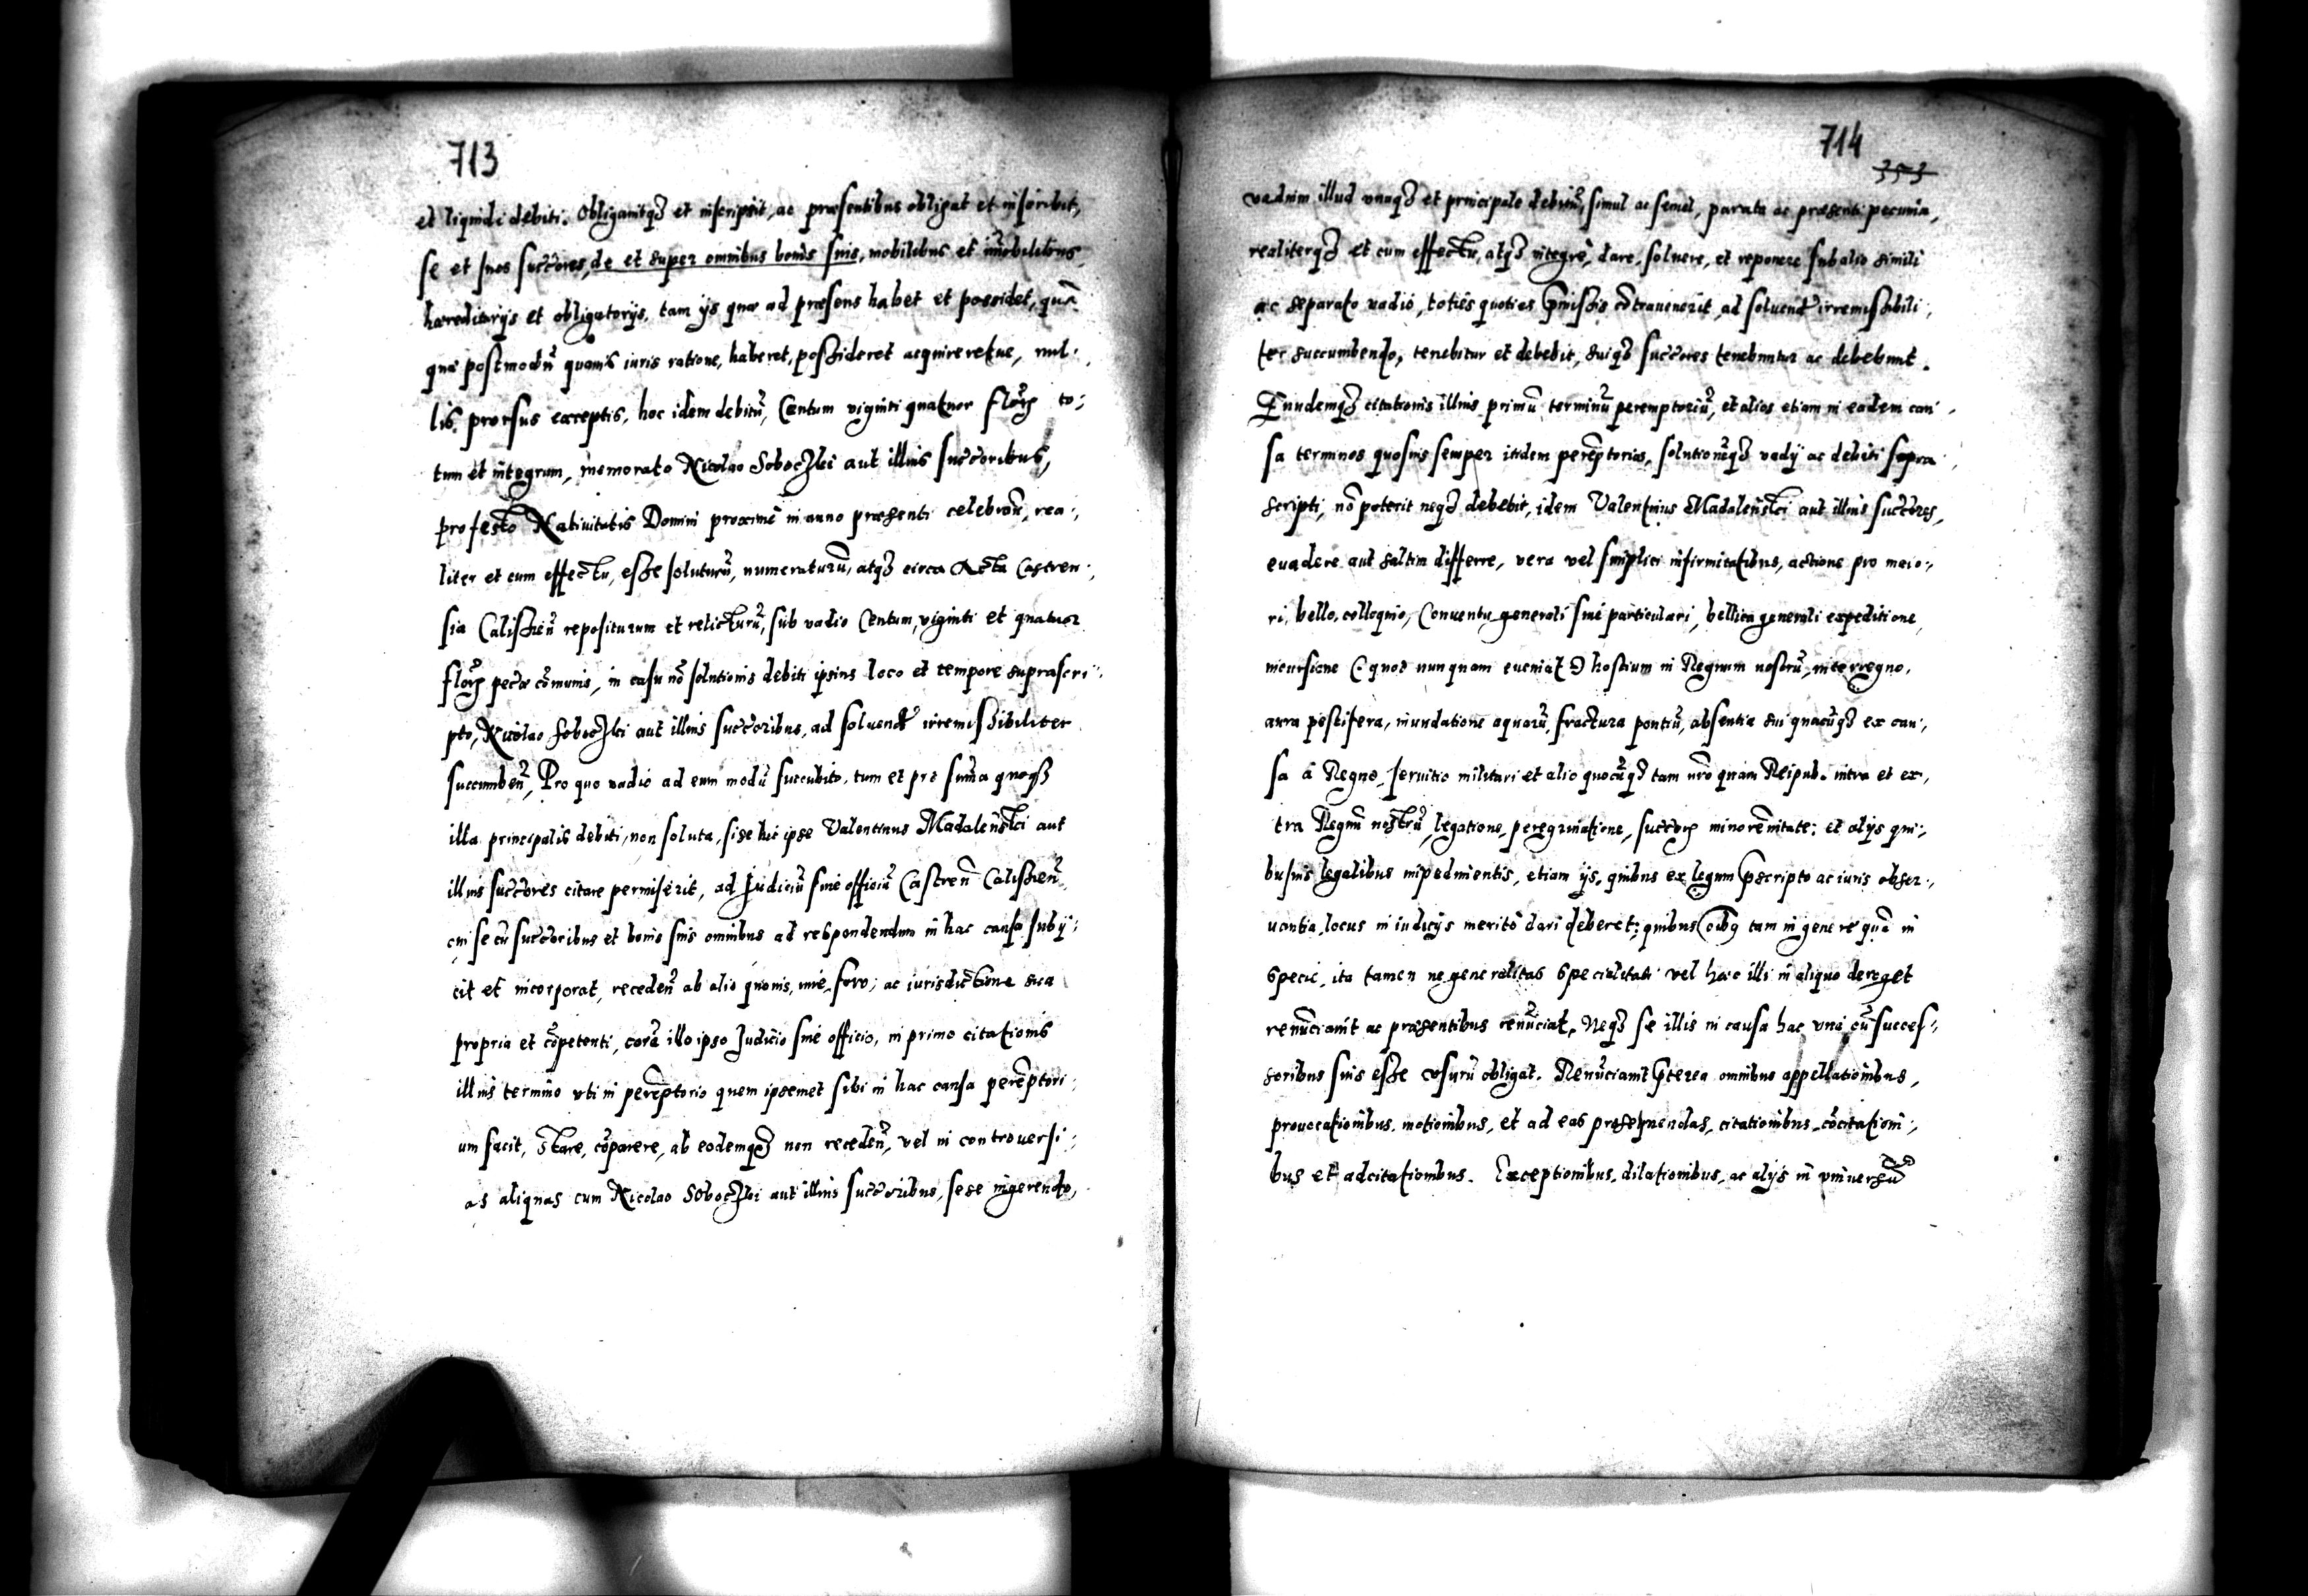 713
et liquidi debiti. Obligauitq₃ et inscripsit, ac præsentibus obligat et inscribit,
se et suos succōres, de et super omnibus bonis suis, mobilibus et im̃obilibus,
hæreditarijs et obligatorijs, tam ijs quæ ad præsens habet et possidet, quā
quæ postmodū quouis iuris ratione, haberet, possideret acquireretue, nul:
lis. prorsus exceptis, hoc idem debitū, Centum viginti quatuor flor̃ to:
tum et integrum, memorato Nicolao Soboczki aut illius succōribus,
profesto Natiuitatis Domini proximè in anno præsenti celebrañ, rea:
liter et cum effectu, esse soluturū, numeraturū, atq₃ circa Acta Castren:
sia Calisieñ repositurum et relicturū, sub vadio Centum, viginti et quatuor
flor̃ pecæ cōmunis, in casu nō solutionis debiti ipsius loco et tempore suprascri:
pto, Nicolao Soboczki aut illius succōribus, ad soluend̃ irremissibiliter
succumbeñ, Pro quo vadio ad eum modū succubito, tum et pro sum̃a quoq₃
illa principalis debiti, non soluta, si se hic ipse Valentinus Madaleński aut
illius succōres citare permiserit, ad Judiciū siue officiū Castreñ Calisieñ,
cui se cū succōribus et bonis suis omnibus ad respondendum in hac causa subij:
cit et incorporat, recedeñ ab alio quouis, iure, foro, ac iurisdictione sua
propria et cōpetenti, corā illo ipso Judicio siue officio, in primo citationis
illius termino vti in perēptorio quem ipsemet sibi in hac causa perēptori:
um facit, stare, cōparere, ab eodemq₃ non recedeñ, vel in controuersi:
as aliquas cum Nicolao Soboczki aut illius succōribus, sese ingerendo,
714
353
vadium illud vnaq₃ et principale debitū, simul ac semel, parata ac præsenti pecunia,
realiterq₃ et cum effectu, atq₃ integrè, dare, soluere, et reponere sub alio simili
ac separato vadio, toties quoties p̃missis cōtrauenerit, ad soluend̃ irremissibili:
ter succumbendo, tenebitur et debebit, suiq₃ succōres tenebuntur ac debebunt.
Eiusdemq₃ citationis illius primū terminū peremptoriū, et alios etiam in eadem cau:
sa terminos quosuis semper itidem perēptorios, solutionēq₃ vadij ac debiti supra
scripti, nō poterit neq₃ debebit, idem Valentinus Madaleński aut illius succōres,
euadere aut saltim differre, vera vel simplici infirmitatibus, actione pro maio:
ri, bello, colloquio, Conuentu generali siue particulari, bellica generali expeditione,
incursione (quot nunquam eueniat) hostium in Regnum nostrū, interregno,
aura pestifera, inundatione aquarū, fractura pontiū, absentia sui quacūq₃ ex cau:
sa à Regno, seruitio militari et alio quocūq₃ tam nr̃o quam Reipub. intra et ex:
tra Regnū nostrū, legatione, peregrinatione, succor̃ minorēnitate; et alijs qui:
busuis legalibus impedimentis, etiam ijs, quibus ex legum p̃scripto ac iuris obser:
uantia, locus in iudicijs meritò dari deberet; quibus oïbq tam in genere quā in
specie, ita tamen ne generalitas specialitati vel hæc illi in aliquo deroget
renūciauit ac præsentibus renūciat, Neq₃ se illis in causa hac vnà cū succes:
soribus suis esse vsurū obligat. Renūciauit p̃terea omnibus appellationibus,
prouocationibus, motionibus, et ad eas prosequendas, citationibus, cōcitationi:
bus et adcitationibus. Exceptionibus, dilationibus, ac alijs in vniuersū